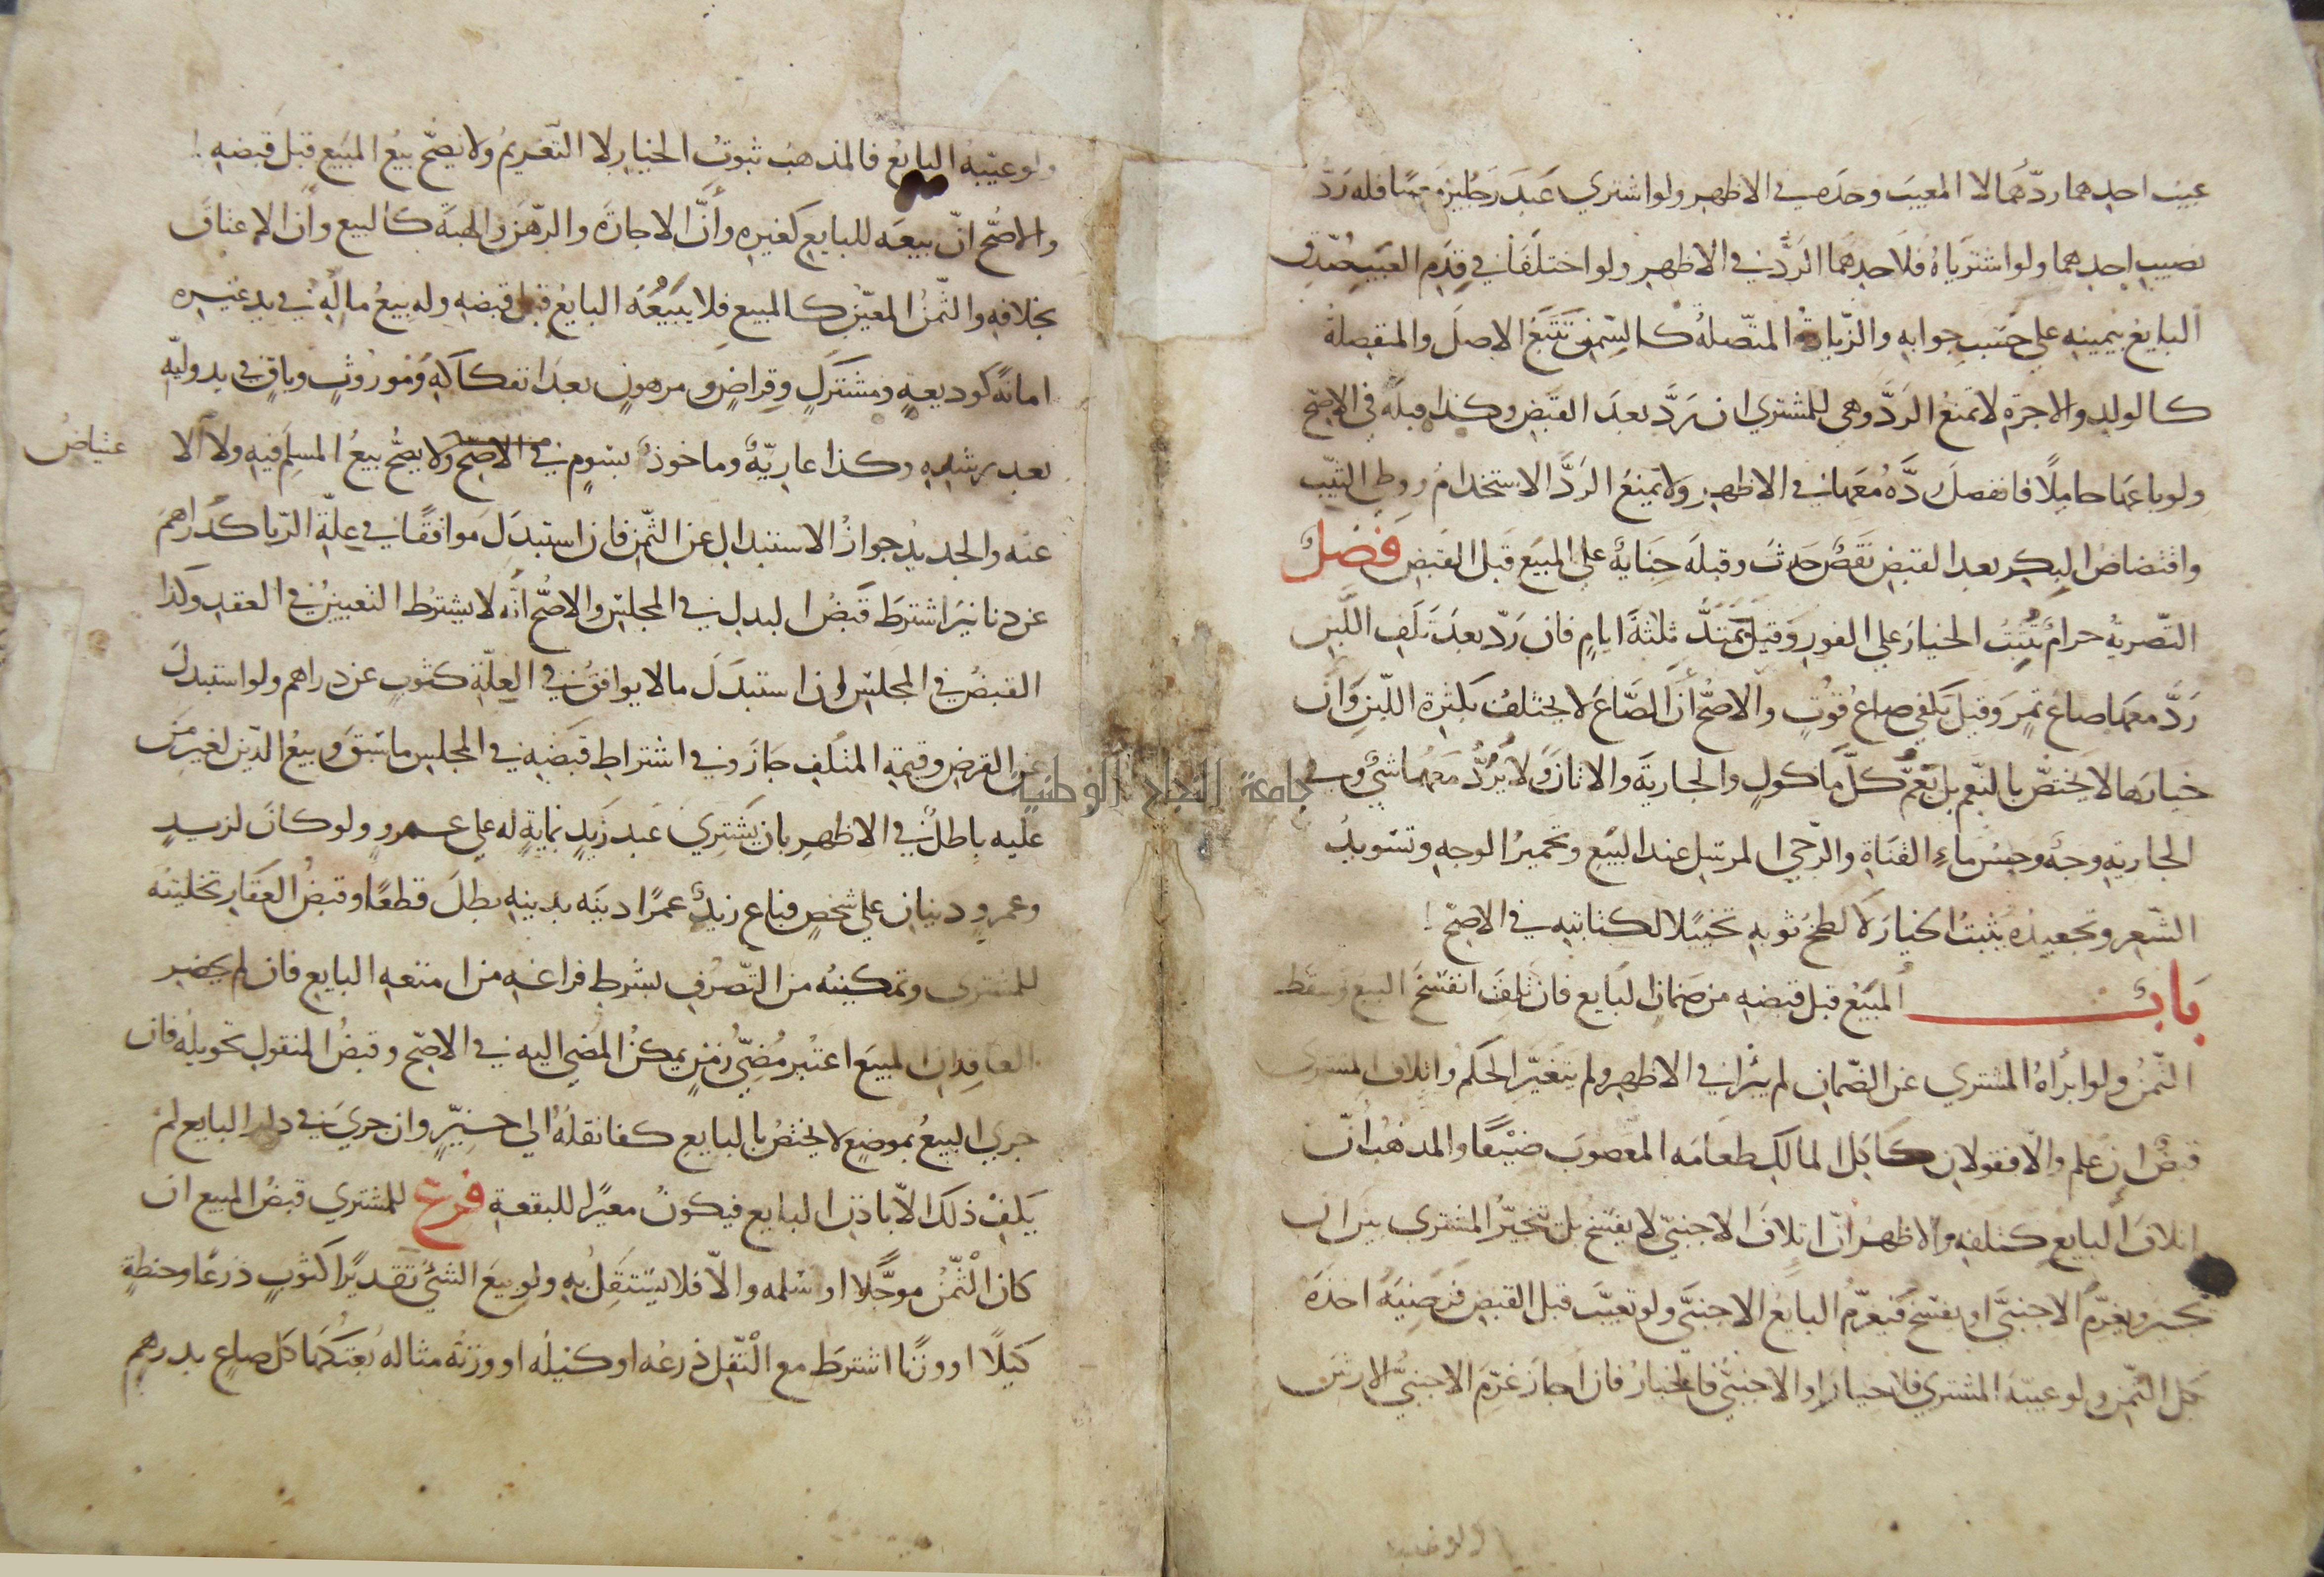 عيب احدهما ردّهما لا المعيب وحده في الاظهر ولو اشتري عبد رجلين معيبًا فله ردّ
نصيب احدهما ولو اشترياه فلاحدهما الردّ في الاظهر ولو اختلفا في قدم العيب صُدّق
البايع بيمينه علي حسب جوابه والزّيادة المتّصلة كالسّمن تتبع الاصل والمنفصلة
كالولد والاجرة لا تمنع الردّ وهي للمشتري ان ردّ بعد القبض وكذا قبله في الاصحّ
ولو باعها حاملًا فانفصل ردّه معها في الاظهر ولا تمنع الردّ الاستخدام ووطي الثيّب
وافتضاضُ البكر بعد القبض نقصٌ حدث وقبله جنايةٌ علي المبيع قبل القبض فصل
التّصرية حرامٌ تُثبتُ الخيار علي الفور وقيل تمتدّ ثلثة ايام فان ردّ بعد تلف اللّبن
ردّ معها صاع تمر وقيل يكفي صاع قوتٍ والاصحّ أنّ الصّاع لا يختلف بكثرة اللّبن وأن
خيارها لا يختصّ بالنّعم بل يعمّ كلّ مأكولٍ والجارية والاتان ولا يردّ معهما شيٌ وفي
الجارية وجهٌ وحبس ماء القناة والرّحي المرسل عند البيع وتحمير الوجه وتسويد
الشّعر وتجعيده يثبت الخيار لا لطخ ثوبه تخييلا لكتابته في الاصحّ
بابٌ المبيع قبل قبضه من ضمان البايع فان تلف انفسخ البيع وسقط
الثّمن ولو ابراه المشتري عن الضّمان لم يبرأ في الاظهر ولم يتغيّر الحكم واتلاف المشتري
قبضٌ ان علم والّا فقولان كاكل المالك طعامه المغصوب ضيفًا والمذهب أنّ
اتلاف البايع كتلفه والاظهر أنّ اتلاف الاجنبيّ لا يفسخ بل يتخيّر المشتري بين ان
يجيز ويغرّم الاجنبيّ او يفسخ فيغرّم البايع الاجنبيّ ولو تعيّب قبل القبض فرضيه اخذه
بكل الثّمن ولو عيّبه المشتري فلا خيار او الاجنبيّ فالخيار فان اجاز غرّم الاجنبيّ الارش
ولو عيّبه البايع فالمذهب ثبوت الخيار لا التّغريم ولا يصحّ بيع المبيع قبل قبضه
والاصحّ انّ بيعه للبايع كغيره وأنّ الاجارة والرّهن والهبة كالبيع وأن الاعتاق
بخلافه والثّمن المعيّن كالمبيع فلا يبيعه البايع قبل قبضه وله بيع ماله في يد غيره
امانةً كوديعةٍ ومشتركٍ وقراضٍ ومرهونٍ بعد انفكاكه وموروثٍ وباقٍ في يد وليّه
بعد رشده وكذا عاريّةٌ وماخوذٌ بسومٍ في الاصحّ ولا يصحّ بيع المسلم فيه ولا الا
عتياض
عنه والجديد جواز الاستبدال عن الثّمن فان استبدل موافقًا في علّة الرّبا كدراهم
عن دنانير اشترط قبض البدل في المجلس والاصحّ أنّه لا يشترط التعيين في العقد وكذا
القبض في المجلس ان استبدل ما لا يوافق في العلّة كثوبٍ عن دراهم ولو استبدل
عن القرض وقيمة المتلف جاز وفي اشتراط قبضه في المجلس ما سبق وبيع الدّين لغير من
عليه باطلٌ في الاظهر بان يشتري عبد زيدٍ بمايةٍ له علي عمرو ولو كان لزيدٍ
وعمرو دينان علي شخصٍ فباع زيدٌ عمرًا دينه بدينه بطل قطعًا وقبض العقار تخليته
للمشتري وتمكينه من التّصرّف بشرط فراغه من امتعة البايع فان لم يحضر
العاقدان المبيع اعتبر مضيّ زمنٍ يمكن المضي اليه في الاصحّ وقبض المنقول تحويله فان
جري البيع بموضعٍ لا يختصّ بالبايع كفا نقله الي حيّزٍ وان جري في دار البايع لم
يكف ذلك الّا باذن البايع فيكون معيرًا للبقعة فرع للمشتري قبض المبيع ان
كان الثّمن موجّلا او سلمه والّا فلا يستقل به ولو بيع الشّي تقديرًا كثوبٍ ذرعًا وحنطةٍ
كيلًا او وزنًا اشترط مع النّقل ذرعه او كيله او وزنه مثاله بعتكها كل صاعٍ بدرهم
جامعة النجاح الوطنية